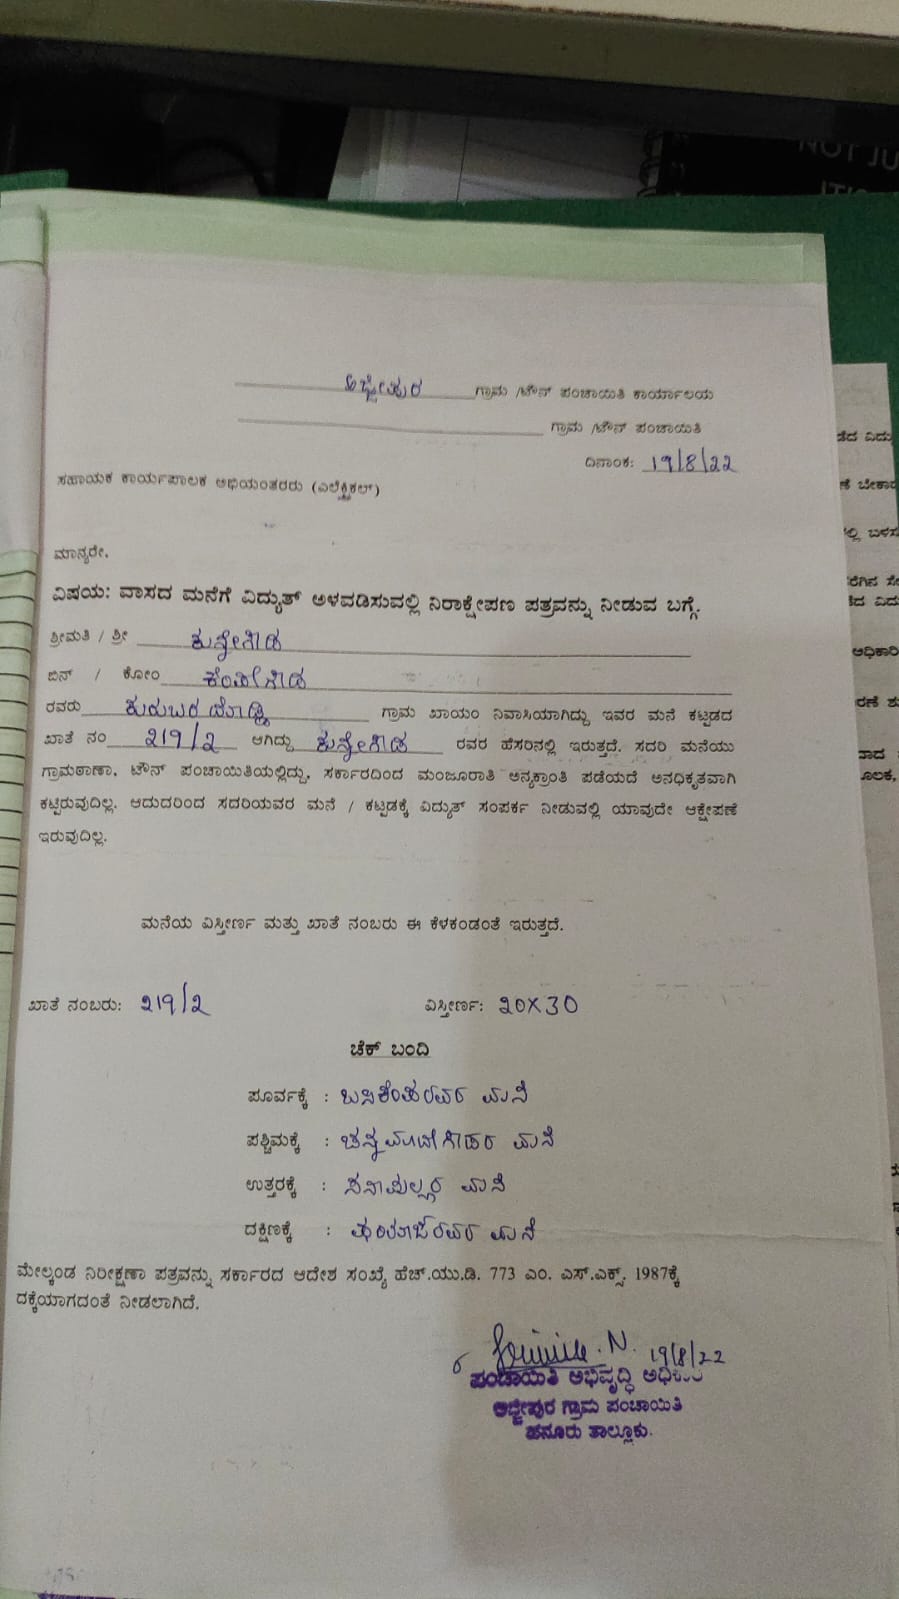 NOT JU
ಅಜ್ಜೀಪುರ ಗ್ರಾಮ /ಟೌನ್ ಪಂಚಾಯಿತಿ ಕಾರ್ಯಾಲಯ
ಗ್ರಾಮ /ಟೌನ್ ಪಂಚಾಯಿತಿ
ದಿನಾಂಕ: 19/8/22
ಸಹಾಯಕ ಕಾರ್ಯಪಾಲಕ ಅಭಿಯಂತರರು (ಎಲೆಕ್ಟ್ರಿಕಲ್)
ಮಾನ್ಯರೇ,
ವಿಷಯ: ವಾಸದ ಮನೆಗೆ ವಿದ್ಯುತ್ ಅಳವಡಿಸುವಲ್ಲಿ ನಿರಾಕ್ಷೇಪಣ ಪತ್ರವನ್ನು ನೀಡುವ ಬಗ್ಗೆ.
ಶ್ರೀಮತಿ / ಶ್ರೀ ಕುನ್ನೇಗೌಡ
ಬಿನ್ / ಕೋಂ ಕೆಂಪೇಗೌಡ
ರವರು ಕುರುಬರ ದೊಡ್ಡಿ ಗ್ರಾಮ ಖಾಯಂ ನಿವಾಸಿಯಾಗಿದ್ದು ಇವರ ಮನೆ ಕಟ್ಟಡದ
ಖಾತೆ ನಂ 219/2 ಆಗಿದ್ದು ಕುನ್ನೇಗೌಡ ರವರ ಹೆಸರಿನಲ್ಲಿ ಇರುತ್ತದೆ. ಸದರಿ ಮನೆಯು
ಗ್ರಾಮಠಾಣಾ, ಟೌನ್ ಪಂಚಾಯಿತಿಯಲ್ಲಿದ್ದು, ಸರ್ಕಾರದಿಂದ ಮಂಜೂರಾತಿ ಅನ್ಯಕ್ರಾಂತಿ ಪಡೆಯದೆ ಅನಧಿಕೃತವಾಗಿ
ಕಟ್ಟಿರುವುದಿಲ್ಲ. ಆದುದರಿಂದ ಸದರಿಯವರ ಮನೆ / ಕಟ್ಟಡಕ್ಕೆ ವಿದ್ಯುತ್ ಸಂಪರ್ಕ ನೀಡುವಲ್ಲಿ ಯಾವುದೇ ಆಕ್ಷೇಪಣೆ
ಇರುವುದಿಲ್ಲ.
ಮನೆಯ ವಿಸ್ತೀರ್ಣ ಮತ್ತು ಖಾತೆ ನಂಬರು ಈ ಕೆಳಕಂಡಂತೆ ಇರುತ್ತದೆ.
ಖಾತೆ ನಂಬರು: 219/2 ವಿಸ್ತೀರ್ಣ: 20X30
ಚೆಕ್ ಬಂದಿ
ಪೂರ್ವಕ್ಕೆ : ಬಸಿಕೆಂಪರವರ ಮನೆ
ಪಶ್ಚಿಮಕ್ಕೆ : ಚನ್ನಮಾದೇಗೌಡರ ಮನೆ
ಉತ್ತರಕ್ಕೆ : ಮನೆ
ದಕ್ಷಿಣಕ್ಕೆ : ಮನೆ
ಮೇಲ್ಕಂಡ ನಿರೀಕ್ಷಣಾ ಪತ್ರವನ್ನು ಸರ್ಕಾರದ ಆದೇಶ ಸಂಖ್ಯೆ ಹೆಚ್.ಯು.ಡಿ. 773 ಎಂ. ಎಸ್.ಎಕ್ಸ್. 1987ಕ್ಕೆ
ದಕ್ಕೆಯಾಗದಂತೆ ನೀಡಲಾಗಿದೆ.
19/8/22
ಪಂಚಾಯಿತಿ ಅಭಿವೃದ್ಧಿ ಅಧಿಕಾರಿ
ಅಜ್ಜೀಪುರ ಗ್ರಾಮ ಪಂಚಾಯಿತಿ
ಹನೂರು ತಾಲ್ಲೂಕು.